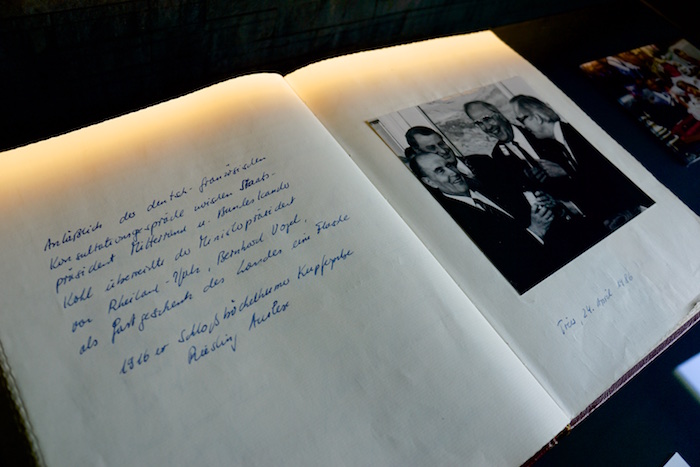 Anläßlich der deutsch-französischen
Konsultationsgespräche zwischen Staats-
präsident Mitterrand u. Bundeskanzler
Kohl überreichte der Ministerpräsident
von Rheinland-Pfalz, Bernhard Vogel,
als Gastgeschenk des Landes eine Flasche
1916er Schloßböckelheimer Kupfergrube
Riesling Auslese
Trier, 24. April 1986